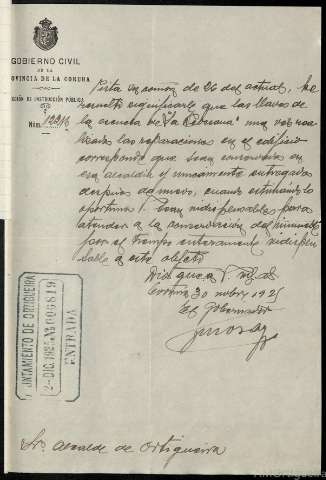 GOBIERNO CIVIL
DE LA
PROVINCIA DE LA CORUÑA
SECCIÓN DE INSTRUCCIÓN PÚBLICA
Núm. 1221
Vista su comon de 26 del actual, he
resuelto significarle que las llaves de
la escuela de "La" una vez rea-
lizadas las reparaciones en el edificio
corresponde que sean conservadas en
esa alcaldía y unicamente entregadas
despues de nuevo, cuando
oportuno sean indispensables para
atender a la conservación del
por el tiempo enteramente indispen-
sable a este objeto
Dios gue a V. m. as
Coruña 30 nobre 1925
El Gobernador
AYUNTAMIENTO DE ORTIGUEIRA
2-DIC.1925 No 005819
ENTRADA
Sr. Alcalde de Ortigueira